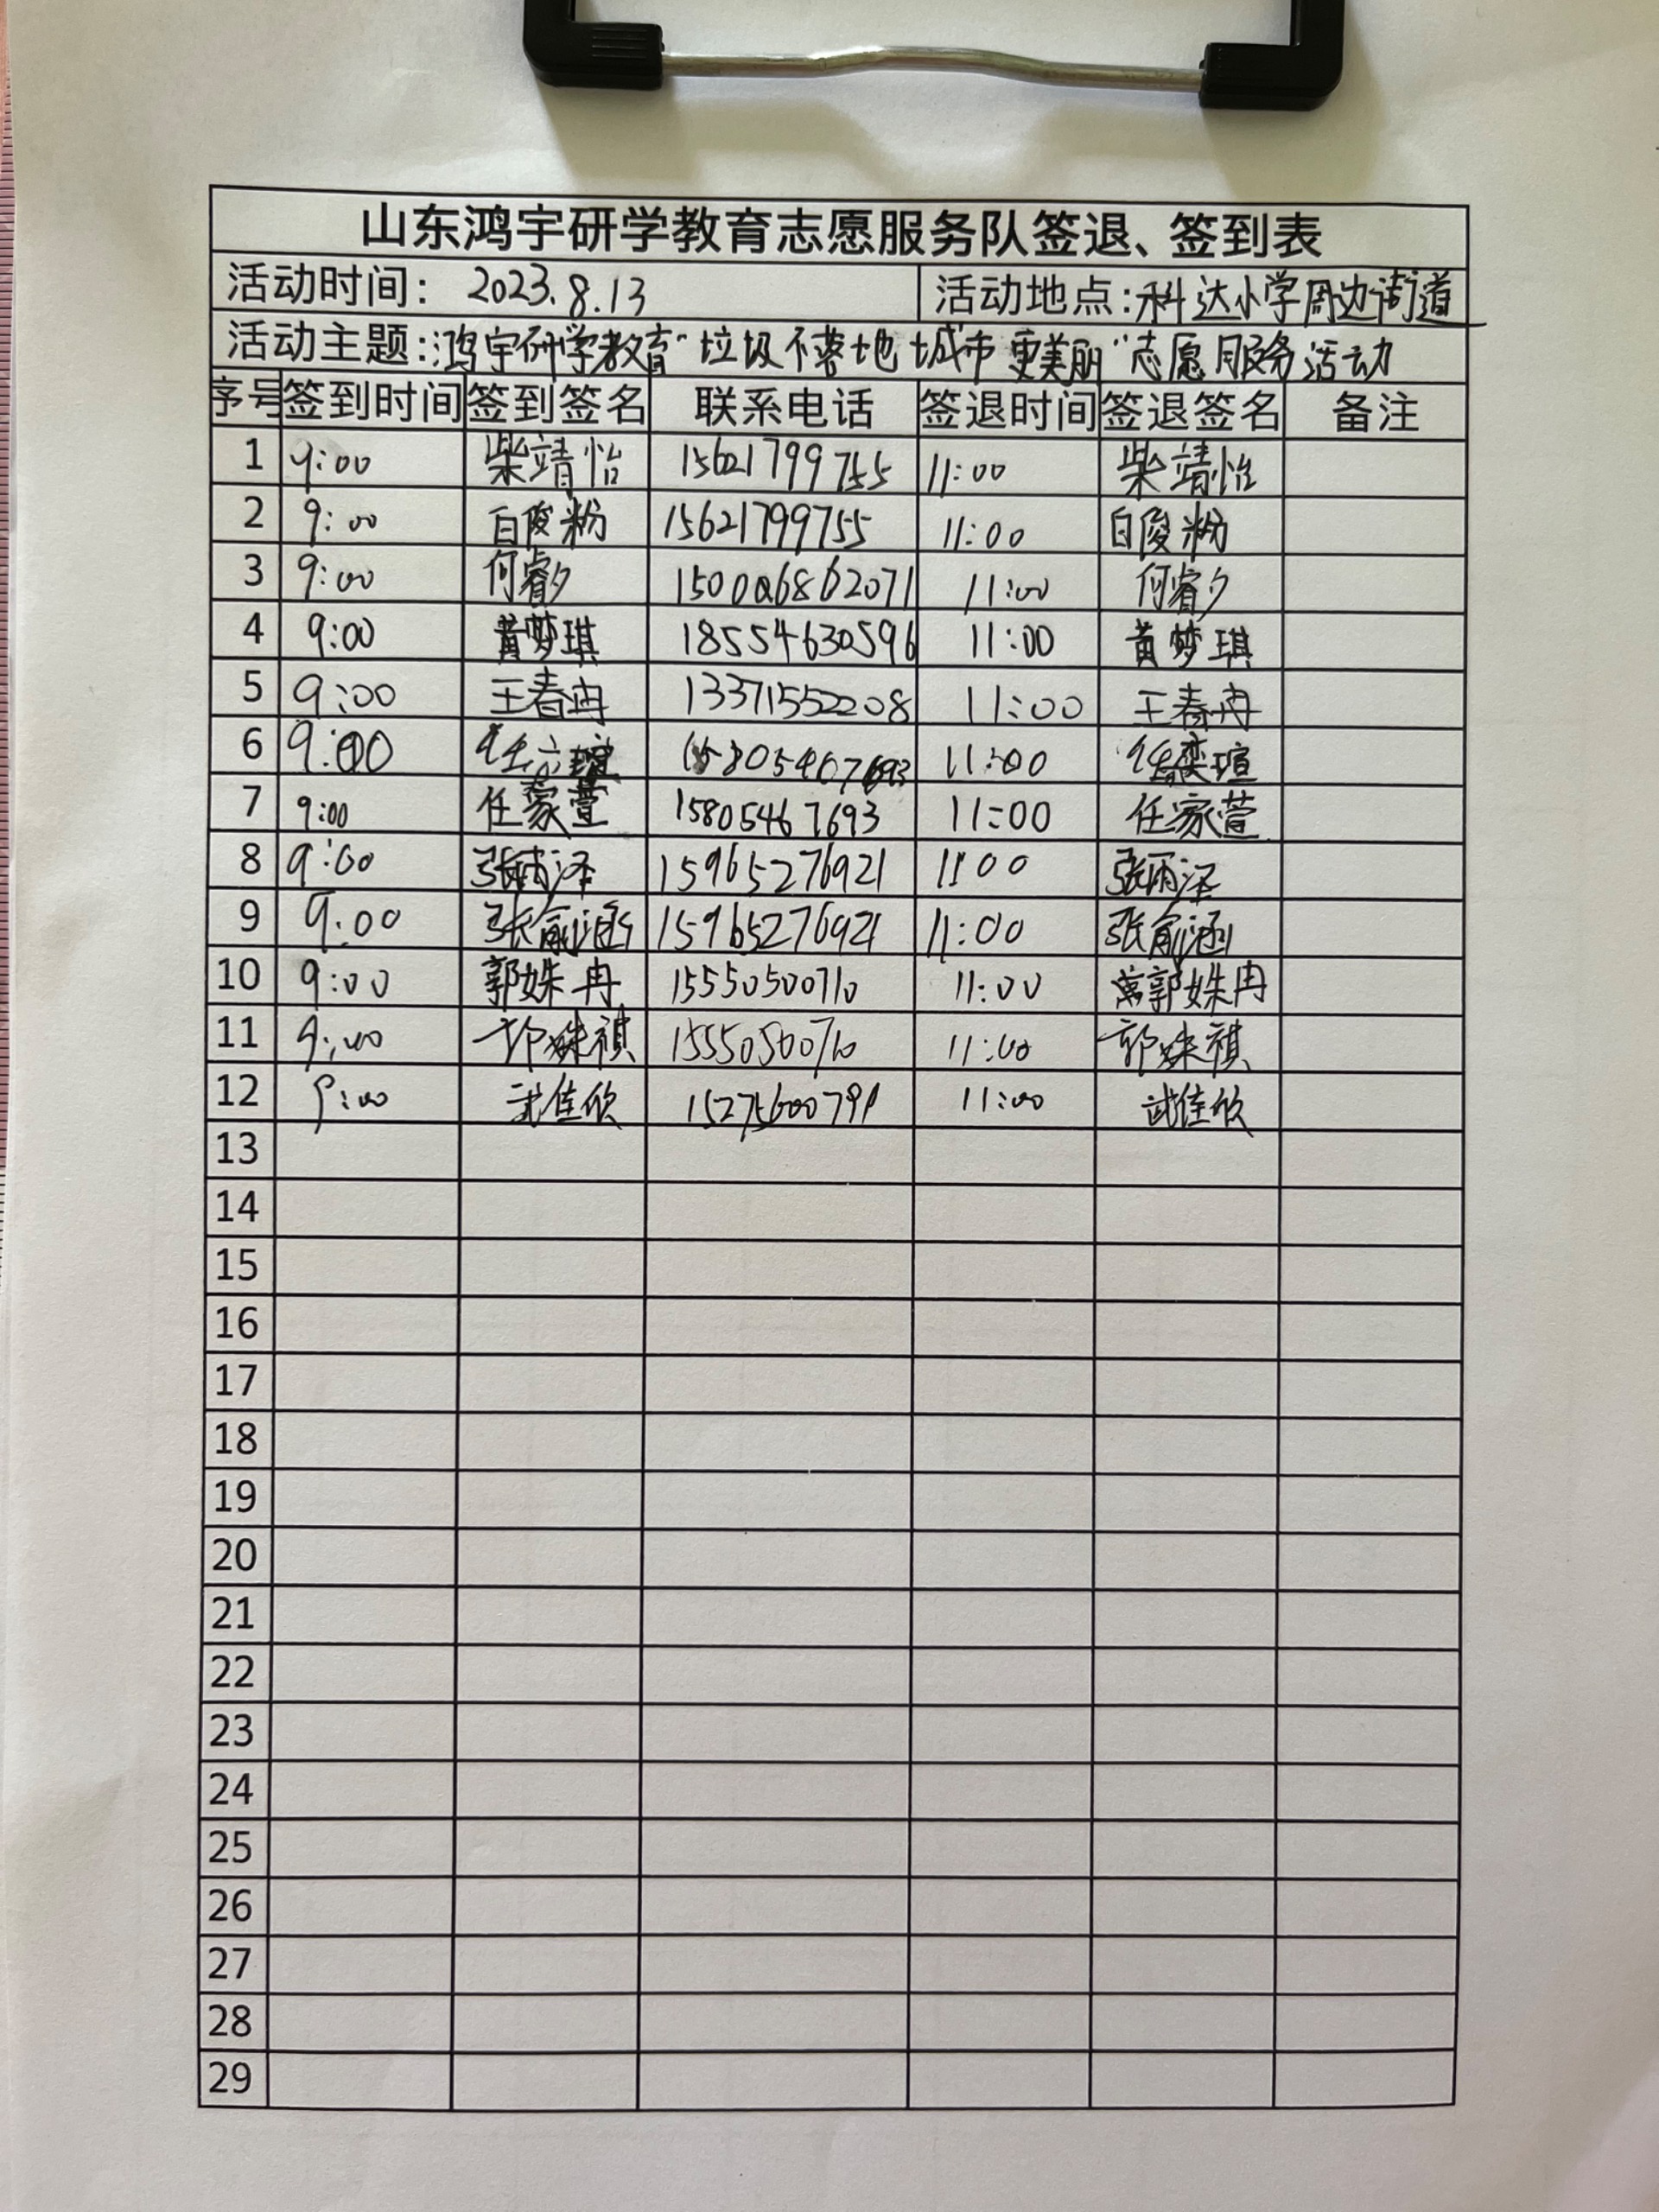 山东鸿宇研学教育志愿服务队签退、签到表
活动时间: 2023.8.13 活动地点:科达小学周边街道
活动主题:鸿宇研学教育“垃圾不落地 城市更美丽”志愿服务活动
序号 签到时间 签到签名 联系电话 签退时间 签退签名 备注
1 9:00 柴靖怡 15621799755 11:00 柴靖怡
2 9:00 白俊粉 15621799755 11:00 白俊粉
3 9:00 何睿夕 11:00 何睿夕
4 9:00 黄梦琪 18554630596 11:00 黄梦琪
5 9:00 王春冉 13371552208 11:00 王春冉
6 9:00 11:00 任奕瑄
7 9:00 任家萱 15805467693 11:00 任家萱
8 9:00 张雨泽 15965276921 11:00 张雨泽
9 9:00 张俞涵 15965276921 11:00 张俞涵
10 9:00 郭姝冉 15550500710 11:00 郭姝冉
11 9:00 郭姝祺 15550500710 11:00 郭姝祺
12 9:00 武佳欣 15275600791 11:00 武佳欣
13
14
15
16
17
18
19
20
21
22
23
24
25
26
27
28
29